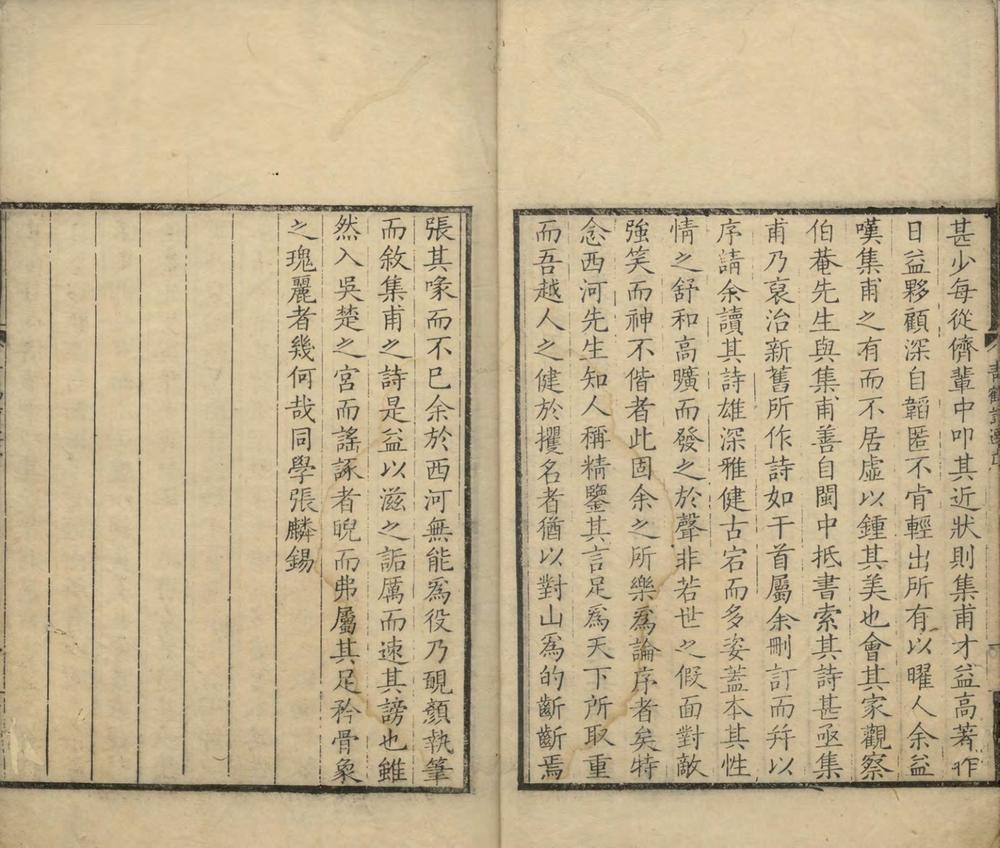 甚少每從儕輩中叩其近狀則集甫才益高著作
日益夥顧深自韜匿不肯輕出所有以曜人余益
嘆集甫之有而不居虛以鍾其美也會其家觀察
伯菴先生與集甫善自閩中抵書索其詩甚亟集
甫乃裒治新舊所作詩如干首屬余刪訂而并以
序請余讀其詩雄深雅健古宕而多姿蓋本其性
情之舒和高曠而發之於聲非若世之假面對敵
強笑而神不偕者此固余之所樂爲論序者矣特
念西河先生知人稱精鑒其言足爲天下所取重
而吾越人之健於擭名者猶以對山爲的齗齗焉
張其喙而不已余於西河無能爲役乃靦顏執筆
而敘集甫之詩是益以滋之詬厲而速其謗也雖
然入吳楚之宮而謠諑者睨而弗屬其足矜骨象
之瑰麗者幾何哉同學張麟錫